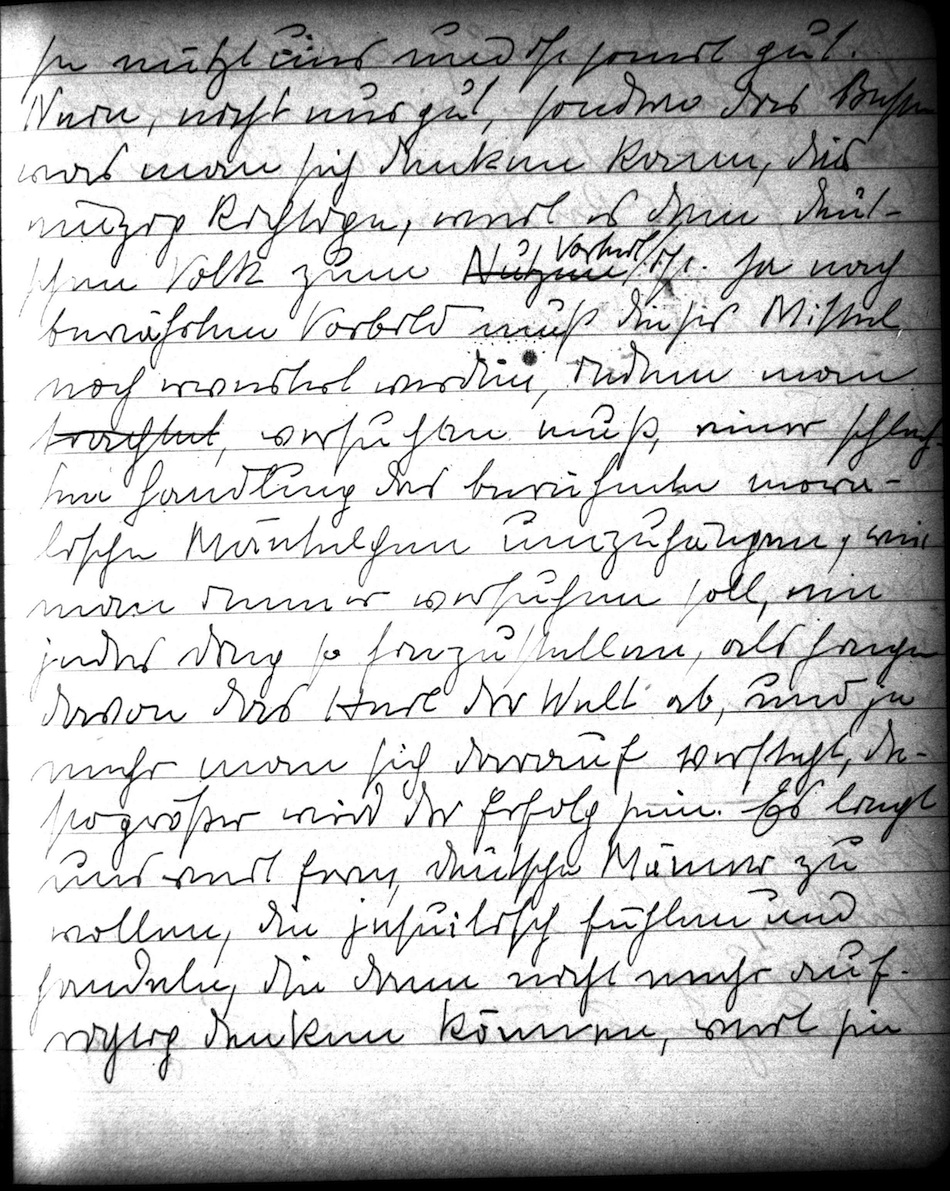 sie nützt uns und ist somit gut.
Nein, nicht nur gut, sondern das Beste
was man sich denken kann, das
einzig Richtige, weil es dem deut-
schen Volk zum Nutzen Vorteil ist. Ja nach
bewährtem Vorbild muß dieses Mittel
noch erweitert werden, indem man
trachtet, versuchen muß, einer schlech-
ten Handlung das berühmte mora-
lische Mäntelchen umzuhängen, wie
man immer versuchen soll, ein
jedes Ding so hinzustellen, als hinge
davon das Heil der Welt ab, und je
mehr man sich darauf versteht, de-
sto größer wird der Erfolg sein. Es liegt
uns weit fern, deutsche Männer zu
wollen, die jesuitisch fühlen und
handeln, die dann nicht mehr auf-
richtig denken können, weil sie